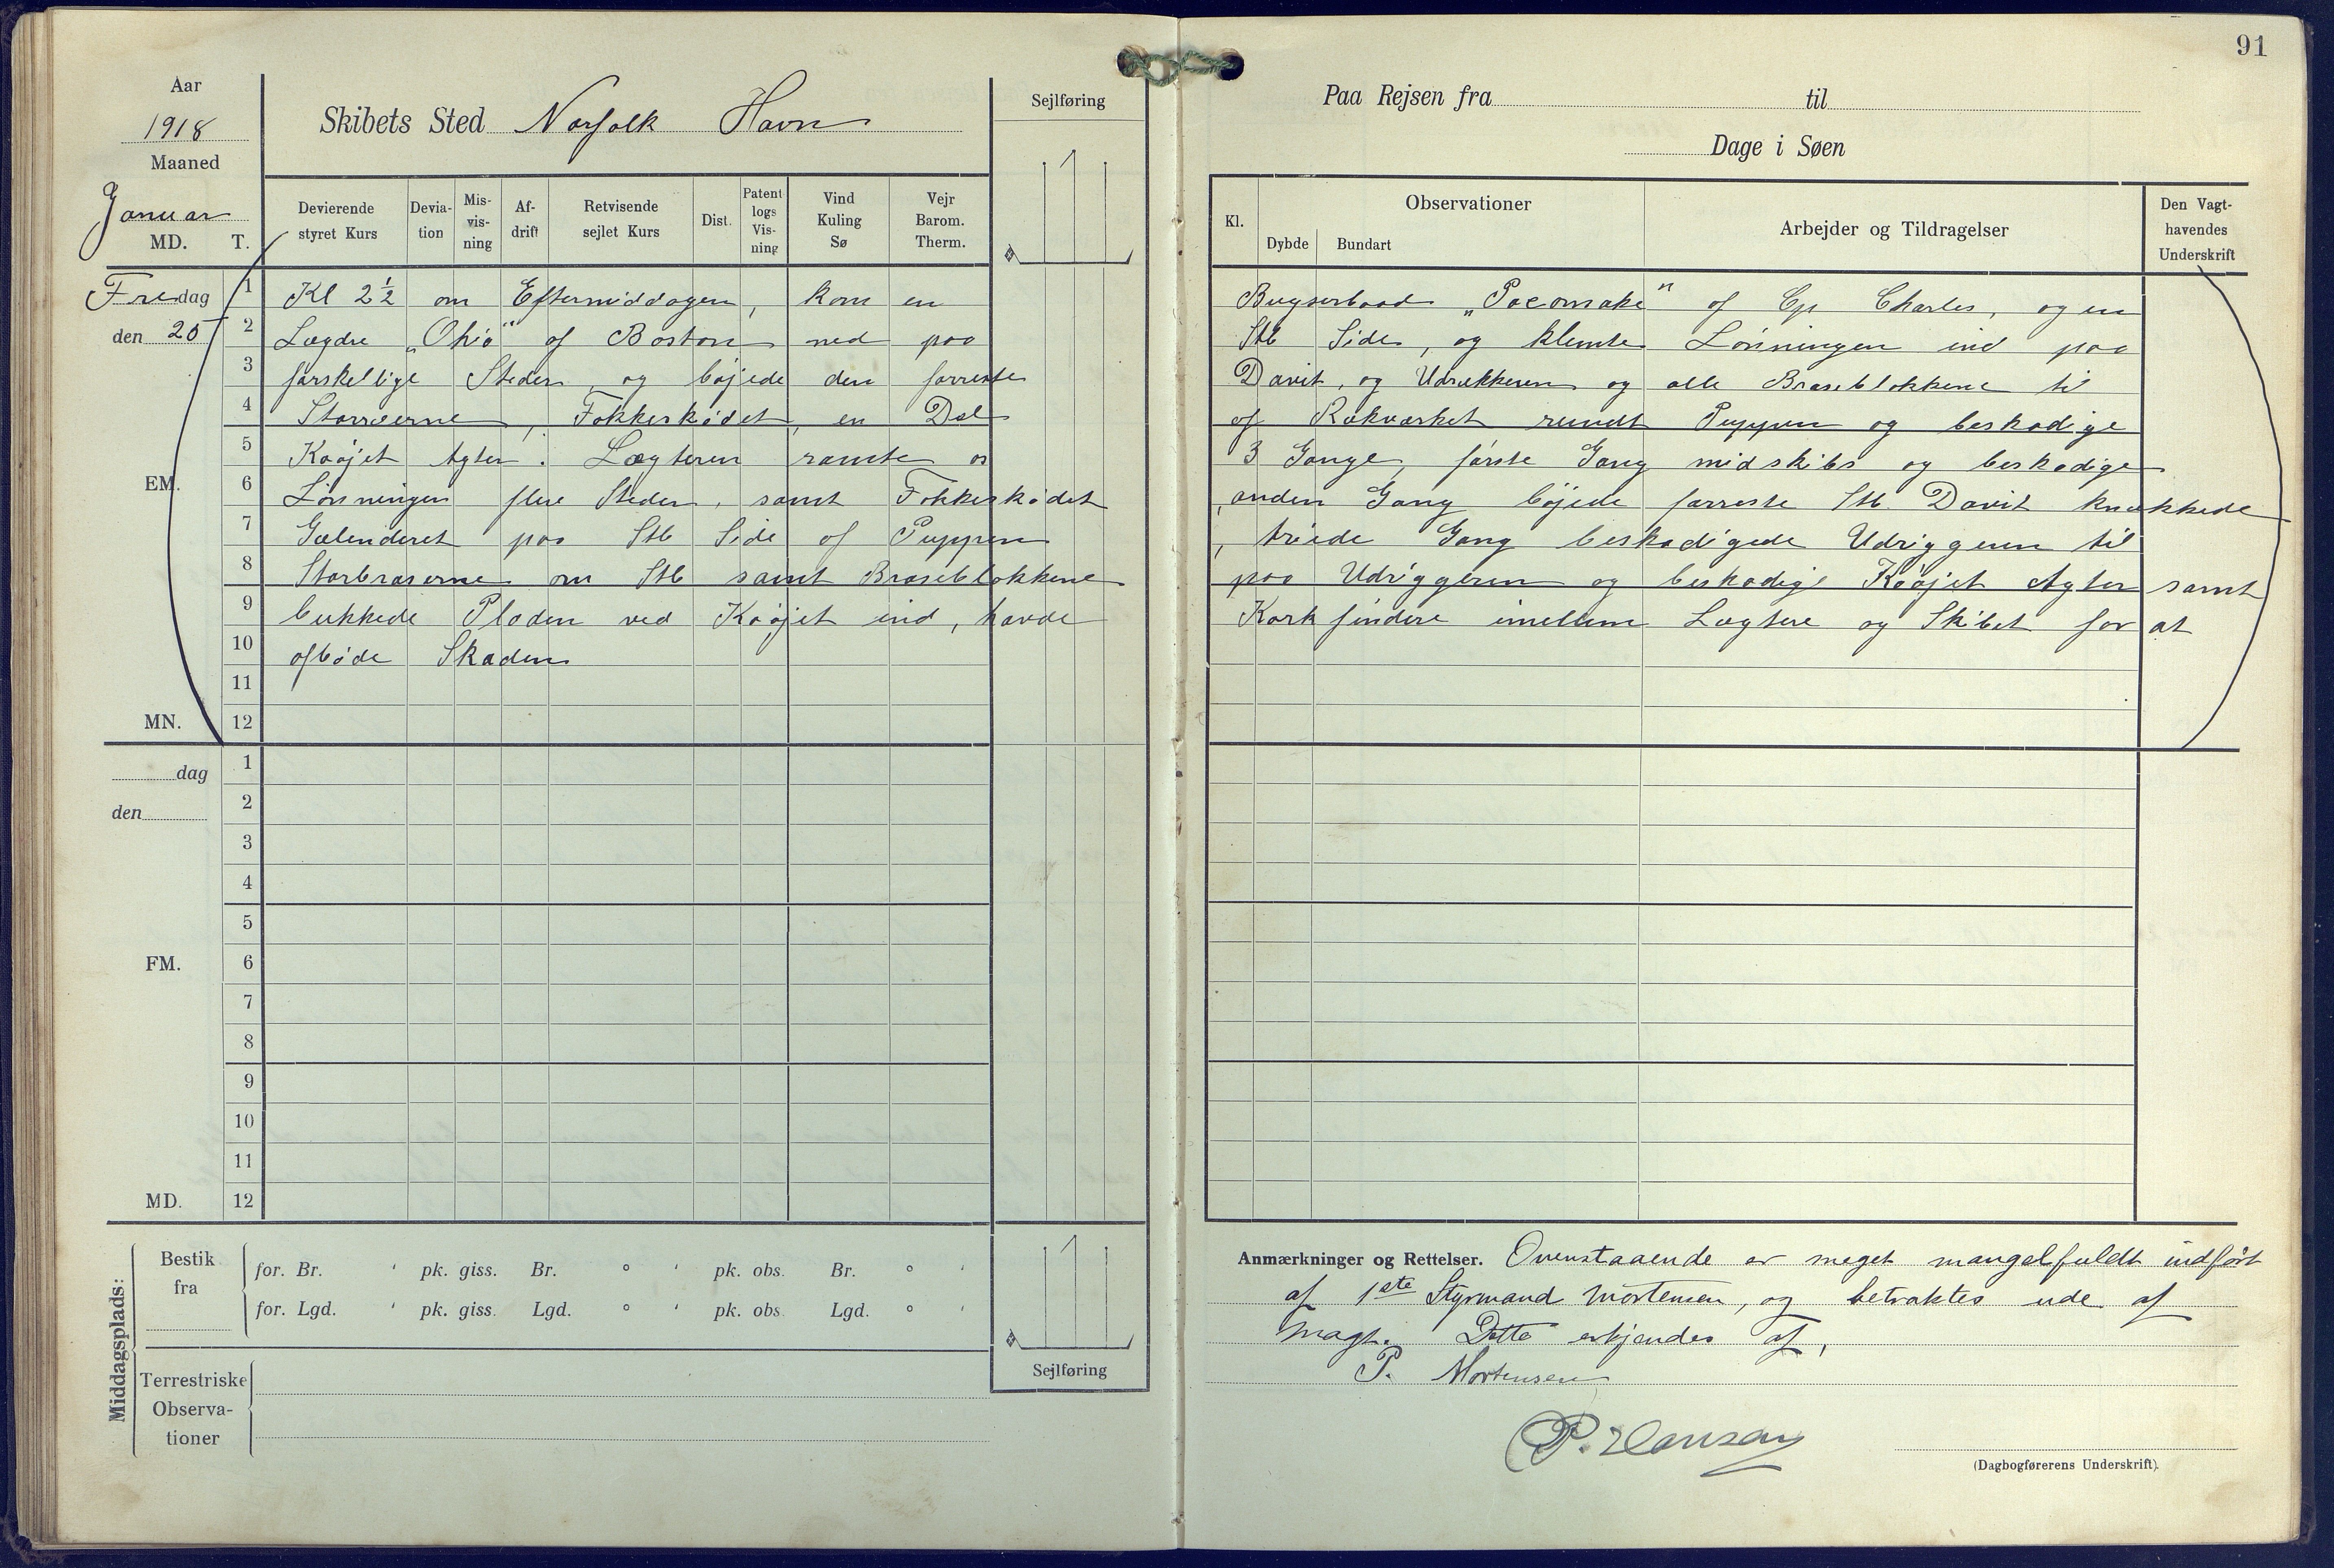 91
Aar
1918
Maaned
Januar
MD. T.
Skibets Sted Norfolk Havn
Sejlføring
Paa Rejsen fra til
Dage i Søen
Devierende styret Kurs
Devia-tion
Mis-vis-ning
Af-drift
Retvisende sejlet Kurs
Dist.
Patent logs Vis-ning
Vind Kuling Sø
Vejr Barom. Therm.
Kl.
Observationer
Dybde Bundart
Arbejder og Tildragelser
Den Vagt-havendes Underskrift
Fredag
den 25
1 Kl 2½ om Eftermiddagen, kom en Bugserbaad „Pocomoke" af Cp Charles, og en
2 Lægdre „Ohio" af Boston ned paa Stb Side, og klemte Lønningen ind paa
3 forskellige Steder, og bøjede den forreste Davit, og Udrækkeren og alle Braseblokkene til
4 Storræerne, Fokkeskødet, en Del af Rækværket rundt Puppen og beskadige
5 Køøjet Agter. Lægteren ramte os 3 Gange, første Gang midskibs og beskadige
EM.
6 Lønningen flere Steder, samt Fokkeskødet, anden Gang bøjede forreste Stb. Davit knækkede
7 Gelenderet paa Stb Side af Puppen, triede Gang beskadigede Udriggeren til
8 Storbraserne om Stb samt Braseblokkene paa Udriggeren og beskadige Køøjet Agter samt
9 bukkede Pladen ved Køøjet ind, havde Korkfindere imellem Lægtere og Skibet for at
10 afbøde Skaden
11
MN. 12
dag 1
2
den
3
4
5
FM. 6
7
8
9
10
11
MD. 12
Middagsplads:
Bestik fra
for. Br. ' pk. giss. Br. ° ' pk. obs. Br. ° '
for. Lgd. ' pk. giss. Lgd. ° ' pk. obs. Lgd. ° '
Terrestriske Observa-tioner
Sejlføring
Anmærkninger og Rettelser. Ovenstaaende er meget mangelfuldt indført
af 1ste Styrmand Mortensen, og betraktes ude af
Magt. Dette erkjendes af,
P. Mortensen
P. Hansen
(Dagbogførerens Underskrift).